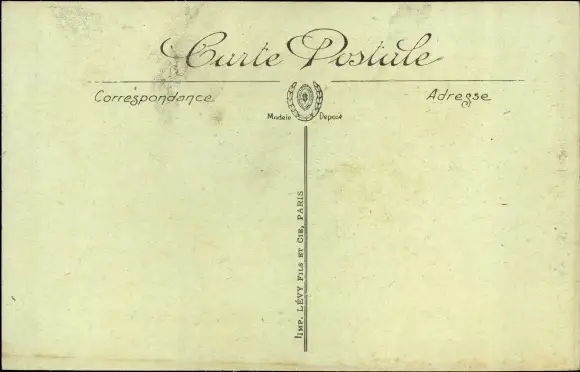 Carte Postale
Correspondance
Adresse
Modele Déposé
IMP. LÉVY FILS ET CIE, PARIS